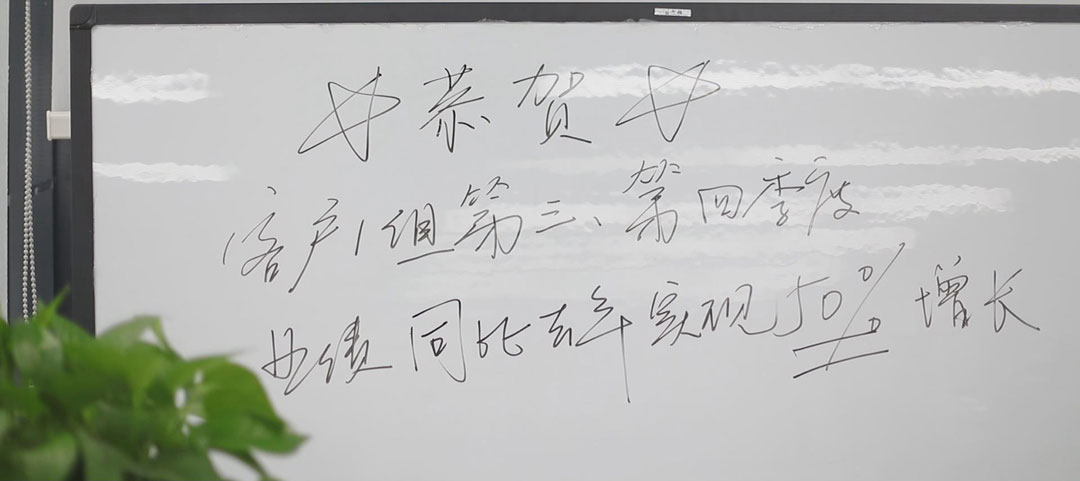 恭贺
客户1组第三、第四季度
业绩同比去年实现50%增长